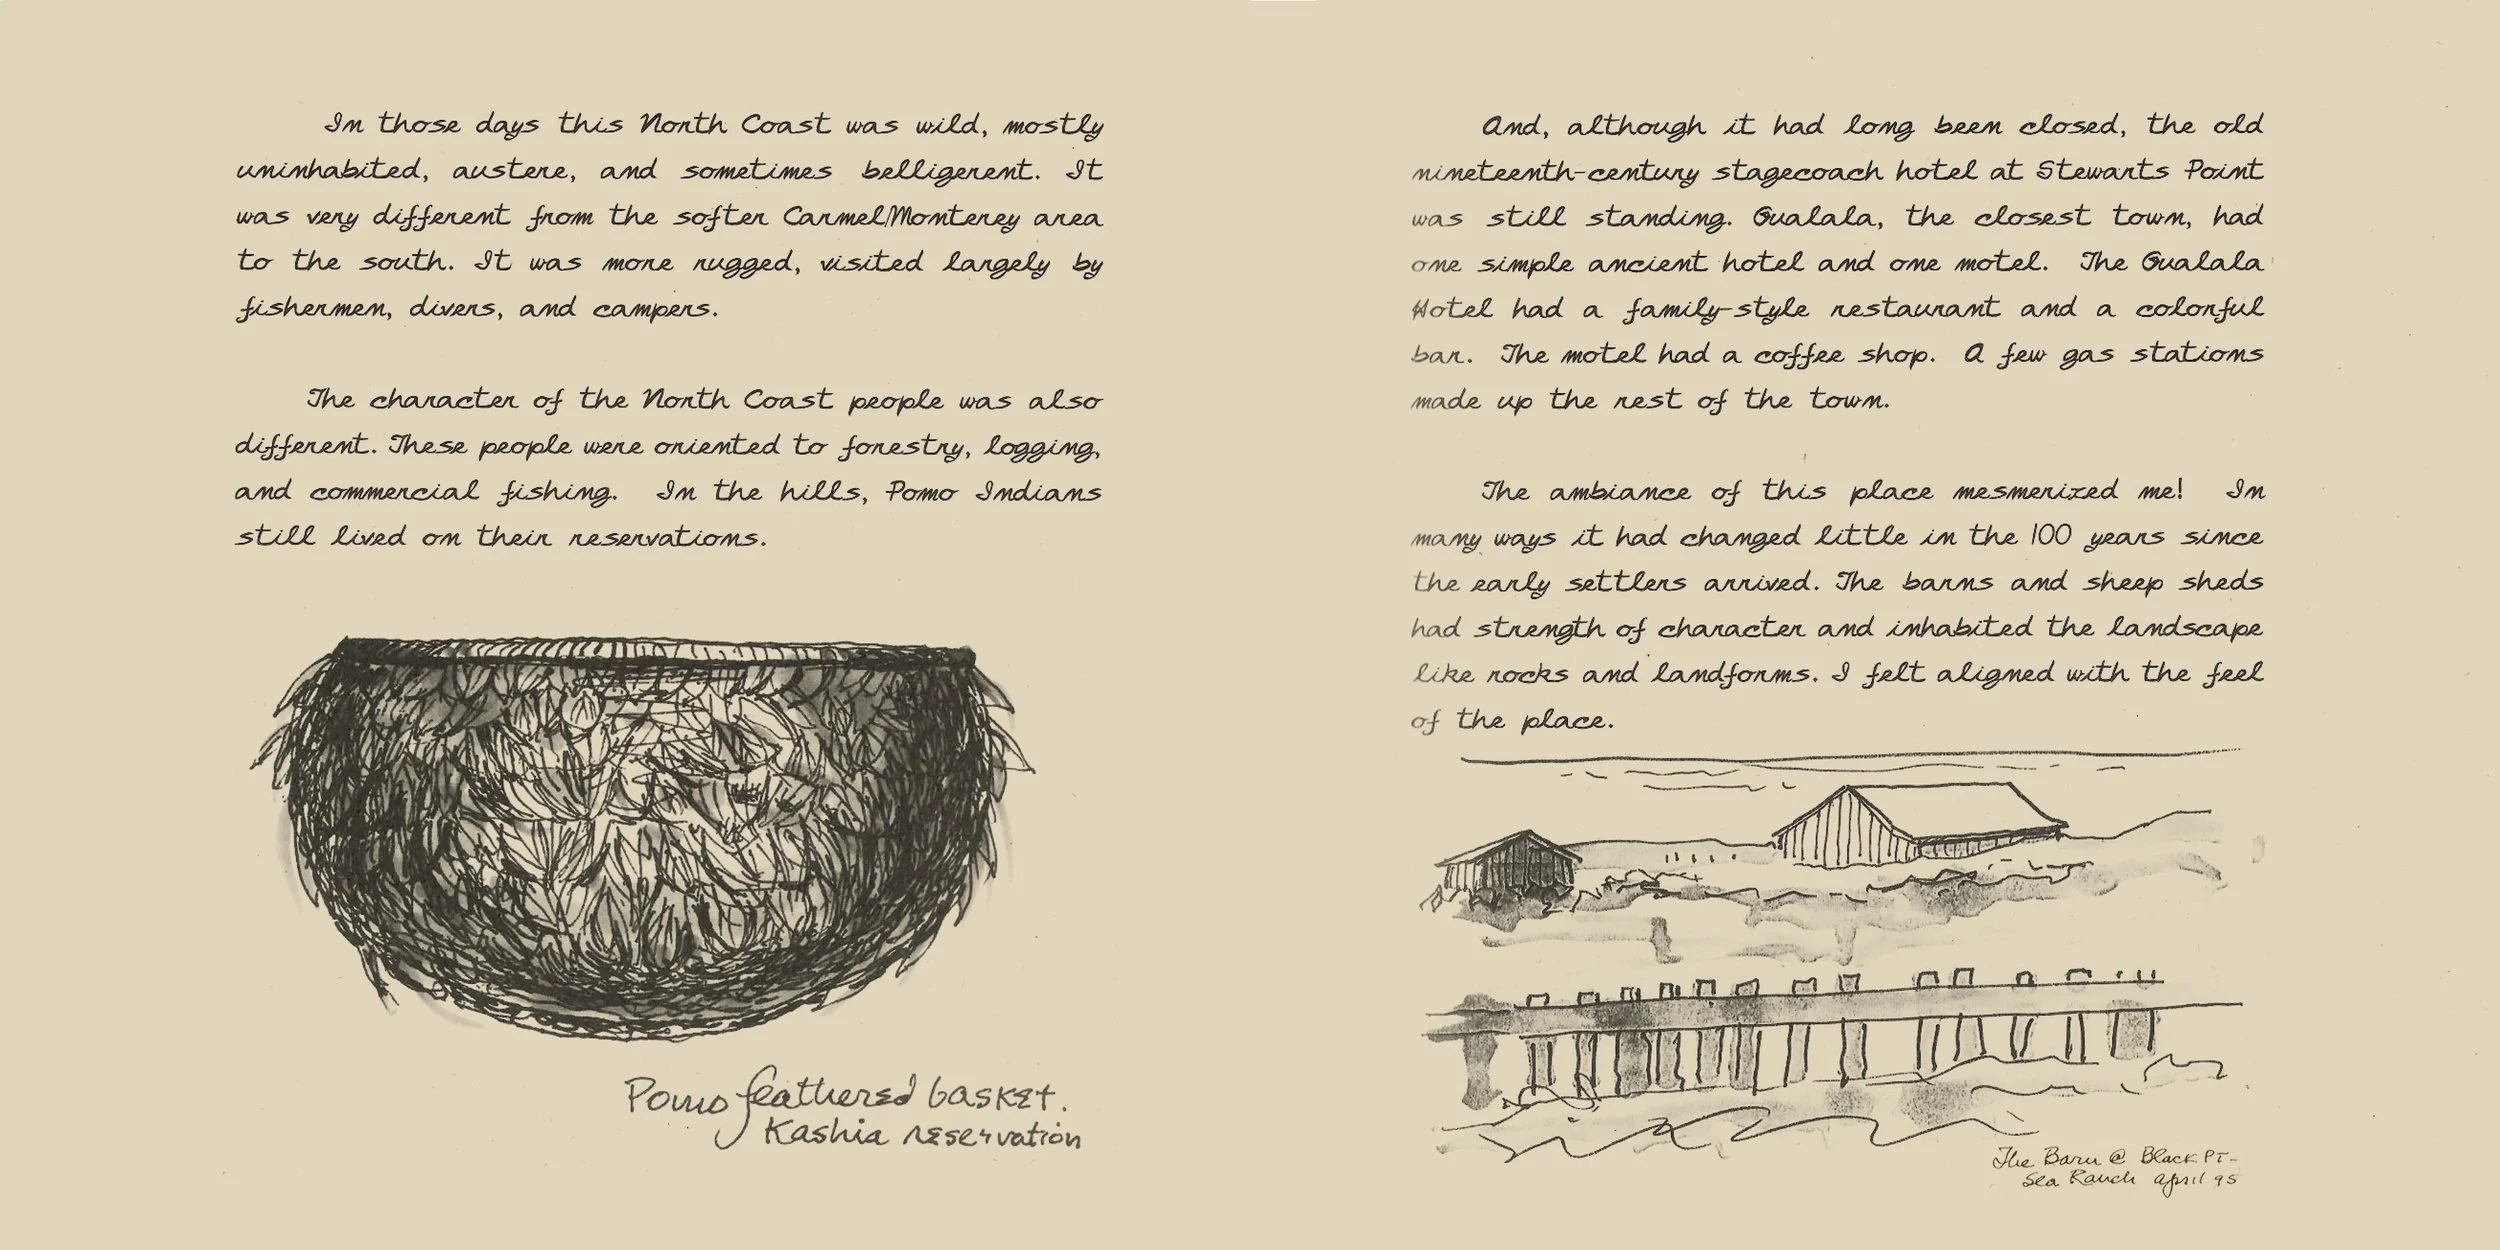 In those days this North Coast was wild, mostly
uninhabited, austere, and sometimes belligerent. It
was very different from the softer Carmel/Monterey area
to the south. It was more rugged, visited largely by
fishermen, divers, and campers.
The character of the North Coast people was also
different. These people were oriented to forestry, logging,
and commercial fishing. In the hills, Pomo Indians
still lived on their reservations.
Pomo feathered basket.
Kashia reservation
And, although it had long been closed, the old
nineteenth-century stagecoach hotel at Stewarts Point
was still standing. Gualala, the closest town, had
one simple ancient hotel and one motel. The Gualala
Hotel had a family-style restaurant and a colorful
bar. The motel had a coffee shop. A few gas stations
made up the rest of the town.
The ambiance of this place mesmerized me! In
many ways it had changed little in the 100 years since
the early settlers arrived. The barns and sheep sheds
had strength of character and inhabited the landscape
like rocks and landforms. I felt aligned with the feel
of the place.
The Barn @ Black PT-
Sea Ranch april 95